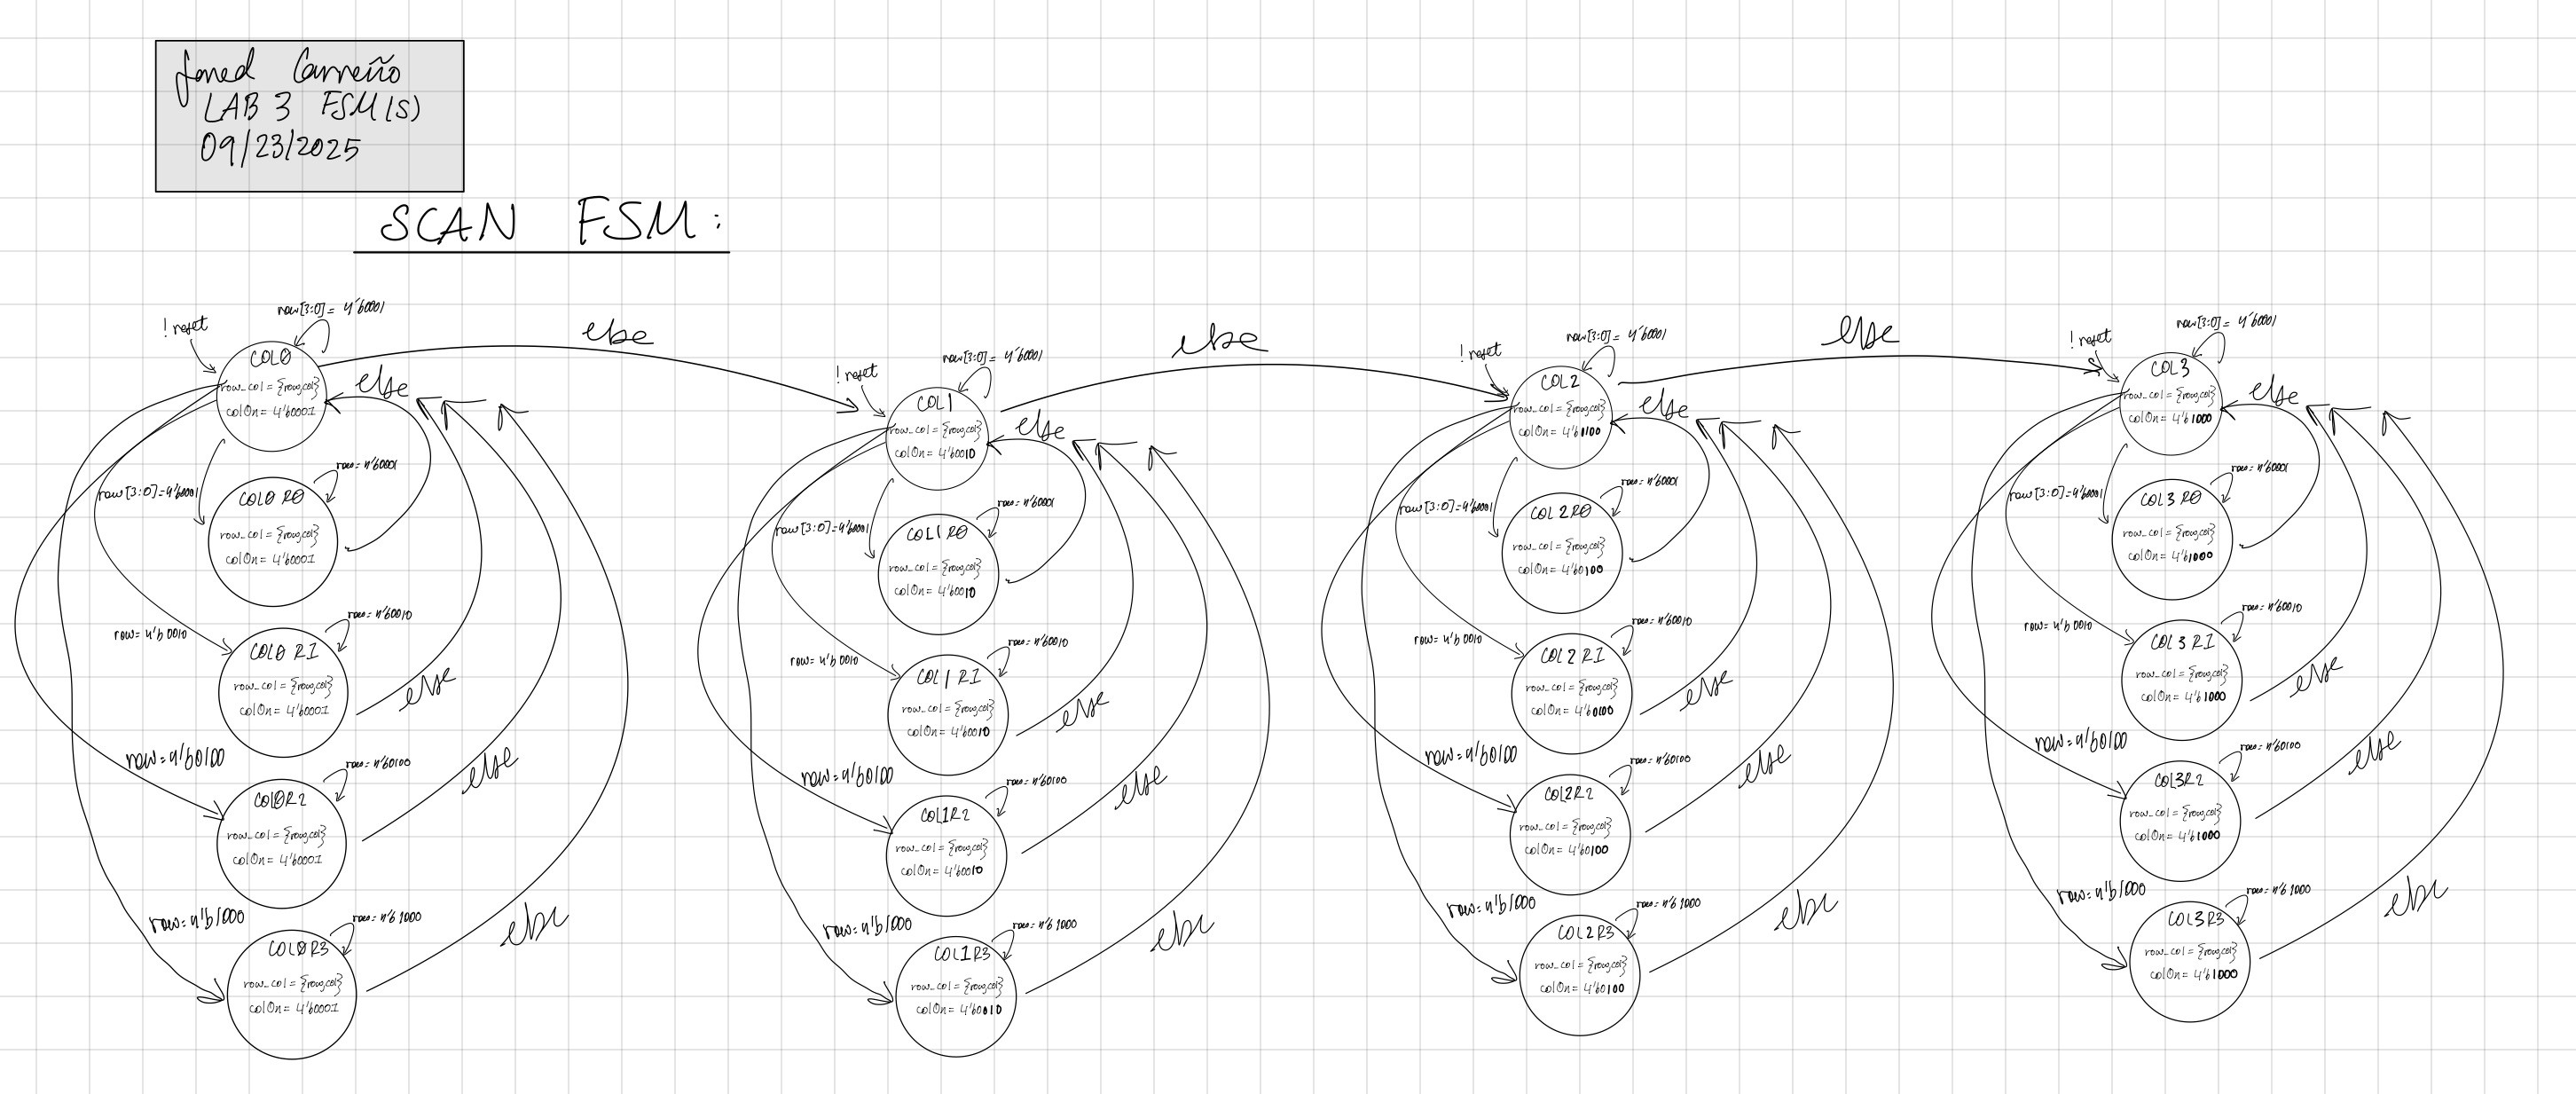 Jared Carreño
LAB 3 FSM(s)
09/23/2025
SCAN FSM:
! reset
row[3:0] = 4'b0001
else
COL0
row_col = {row,col}
colOn = 4'b0001
else
row[3:0]=4'b0001
row = 4'b0001
COL0 R0
row_col = {row,col}
colOn = 4'b0001
row = 4'b0010
row = 4'b0010
COL0 R1
row_col = {row,col}
colOn = 4'b0001
else
row = 4'b0100
row = 4'b0100
COL0R2
row_col = {row,col}
colOn = 4'b0001
else
row = 4'b1000
row = 4'b1000
COL0R3
row_col = {row,col}
colOn = 4'b0001
else
! reset
row[3:0] = 4'b0001
else
COL1
row_col = {row,col}
colOn = 4'b0010
else
row[3:0]=4'b0001
row = 4'b0001
COL1R0
row_col = {row,col}
colOn = 4'b0010
row = 4'b0010
row = 4'b0010
COL1 R1
row_col = {row,col}
colOn = 4'b0010
else
row = 4'b0100
row = 4'b0100
COL1R2
row_col = {row,col}
colOn = 4'b0010
else
row = 4'b1000
row = 4'b1000
COL1R3
row_col = {row,col}
colOn = 4'b0010
else
! reset
row[3:0] = 4'b0001
else
COL2
row_col = {row,col}
colOn = 4'b1100
else
row[3:0]=4'b0001
row = 4'b0001
COL2R0
row_col = {row,col}
colOn = 4'b0100
row = 4'b0010
row = 4'b0010
COL2R1
row_col = {row,col}
colOn = 4'b0100
else
row = 4'b0100
row = 4'b0100
COL2R2
row_col = {row,col}
colOn = 4'b0100
else
row = 4'b1000
row = 4'b1000
COL2R3
row_col = {row,col}
colOn = 4'b0100
else
! reset
row[3:0] = 4'b0001
COL3
row_col = {row,col}
colOn = 4'b1000
else
row[3:0]=4'b0001
row = 4'b0001
COL3R0
row_col = {row,col}
colOn = 4'b1000
row = 4'b0010
row = 4'b0010
COL3R1
row_col = {row,col}
colOn = 4'b1000
else
row = 4'b0100
row = 4'b0100
COL3R2
row_col = {row,col}
colOn = 4'b1000
else
row = 4'b1000
row = 4'b1000
COL3R3
row_col = {row,col}
colOn = 4'b1000
else